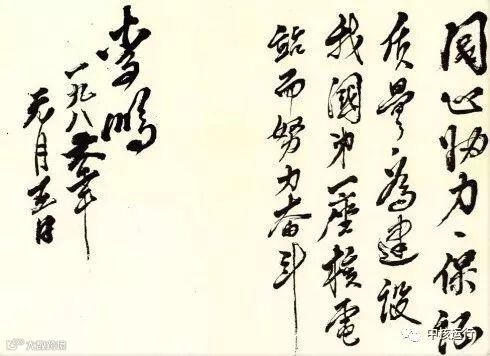 同心协力、保证
质量、為建设
我國第一座核電
站而努力奋斗
李鹏
一九八六年
元月五日
大数跨境
中核运行